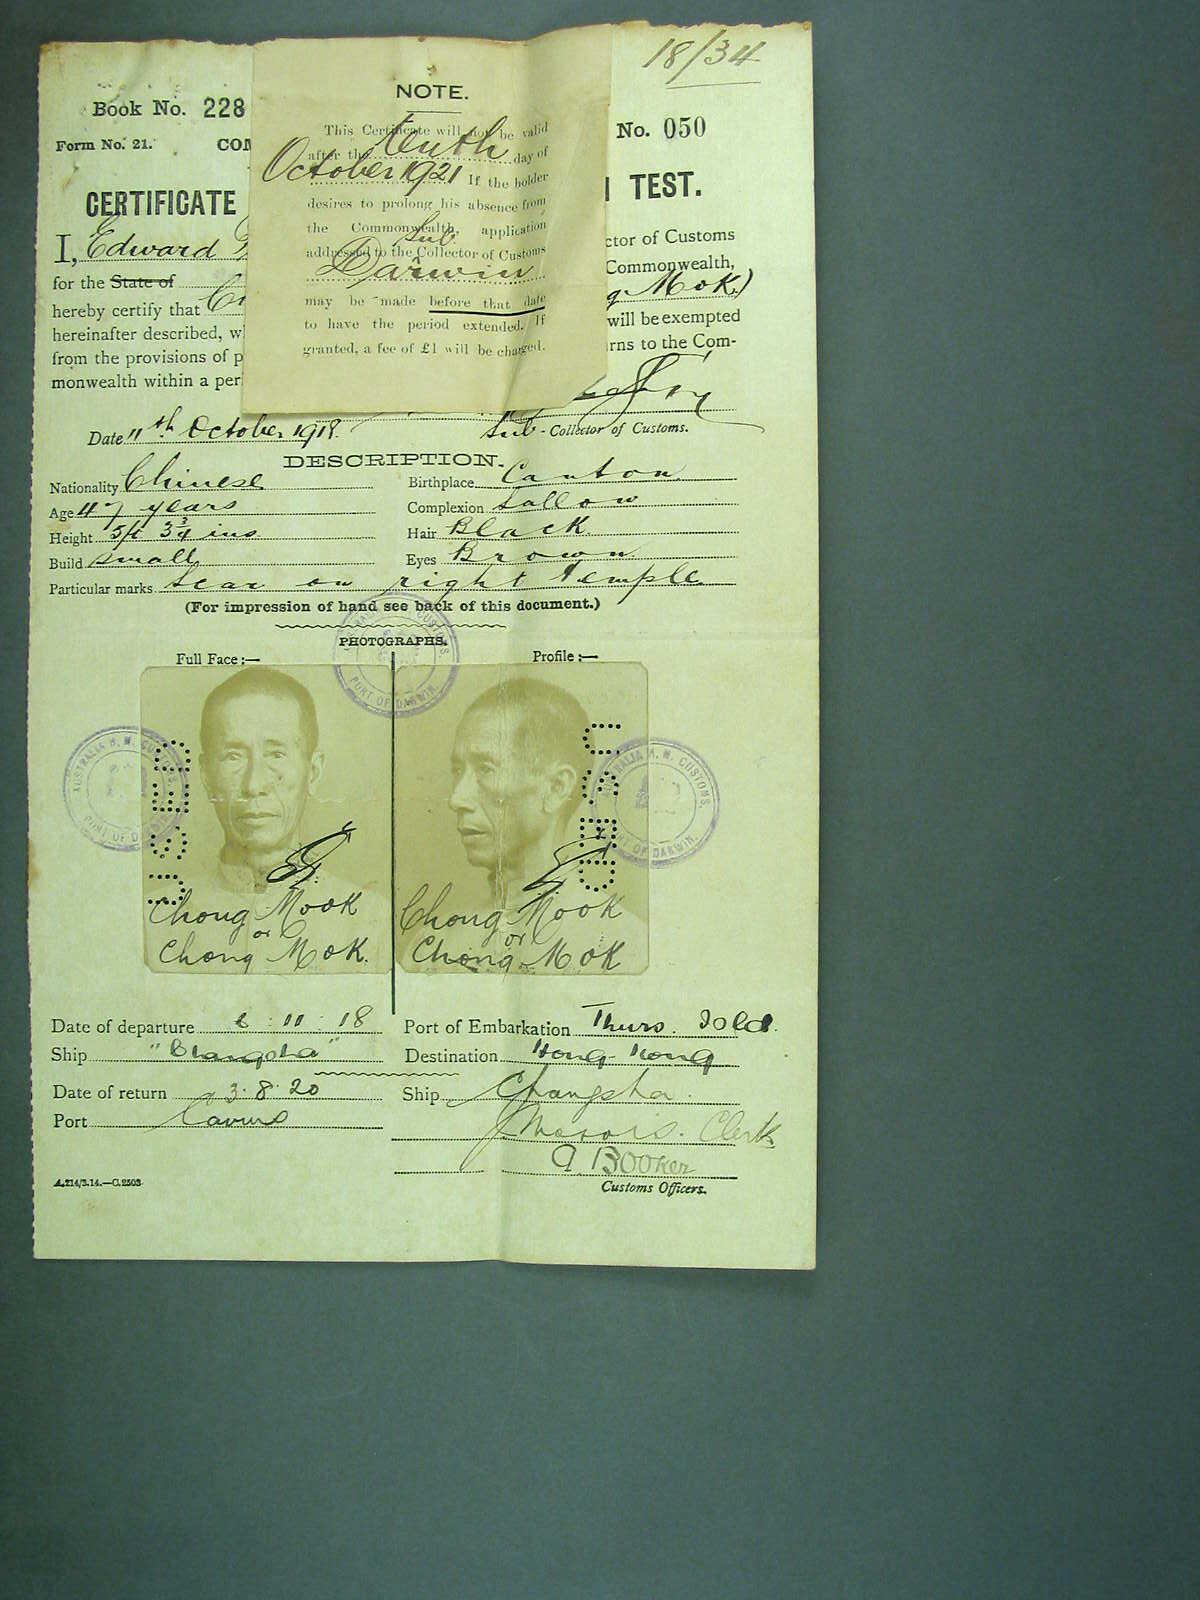 18/34
Book No. 228
No. 050
Form No. 21.
CERTIFICATE
TEST.
I, Edward
ctor of Customs
for the State of
Commonwealth,
hereby certify that
g Mok)
hereinafter described, w
will be exempted
from the provisions of p
rns to the Com-
monwealth within a per
NOTE.
This Certificate will not be valid
after the tenth day of
October 1921 If the holder
desires to prolong his absence from
the Commonwealth, application
addressed to the Sub Collector of Customs
Darwin
may be made before that date
to have the period extended. If
granted, a fee of £1 will be charged.
Date 11th October 1918.
Sub-Collector of Customs.
DESCRIPTION.
Nationality Chinese
Birthplace Canton
Age 47 years
Complexion Sallow
Height 5ft 3¾ ins
Hair Black
Build small
Eyes Brown
Particular marks Scar on right temple
(For impression of hand see back of this document.)
PHOTOGRAPHS.
Full Face:—
Profile:—
AUSTRALIA H. M. CUSTOMS. PORT OF DARWIN.
AUSTRALIA H. M. CUSTOMS. PORT OF DARWIN.
AUSTRALIA H. M. CUSTOMS. PORT OF DARWIN.
Chong Mook
or
Chong Mok.
Chong Mook
or
Chong Mok
Date of departure 6 : 11 : 18
Port of Embarkation Thurs. Isld.
Ship "Changsha"
Destination Hong Kong
Date of return 3.8.20
Ship Changsha.
Port Cairns
Clerk
A. Booker
Customs Officers.
A.214/3.14.—C.2503